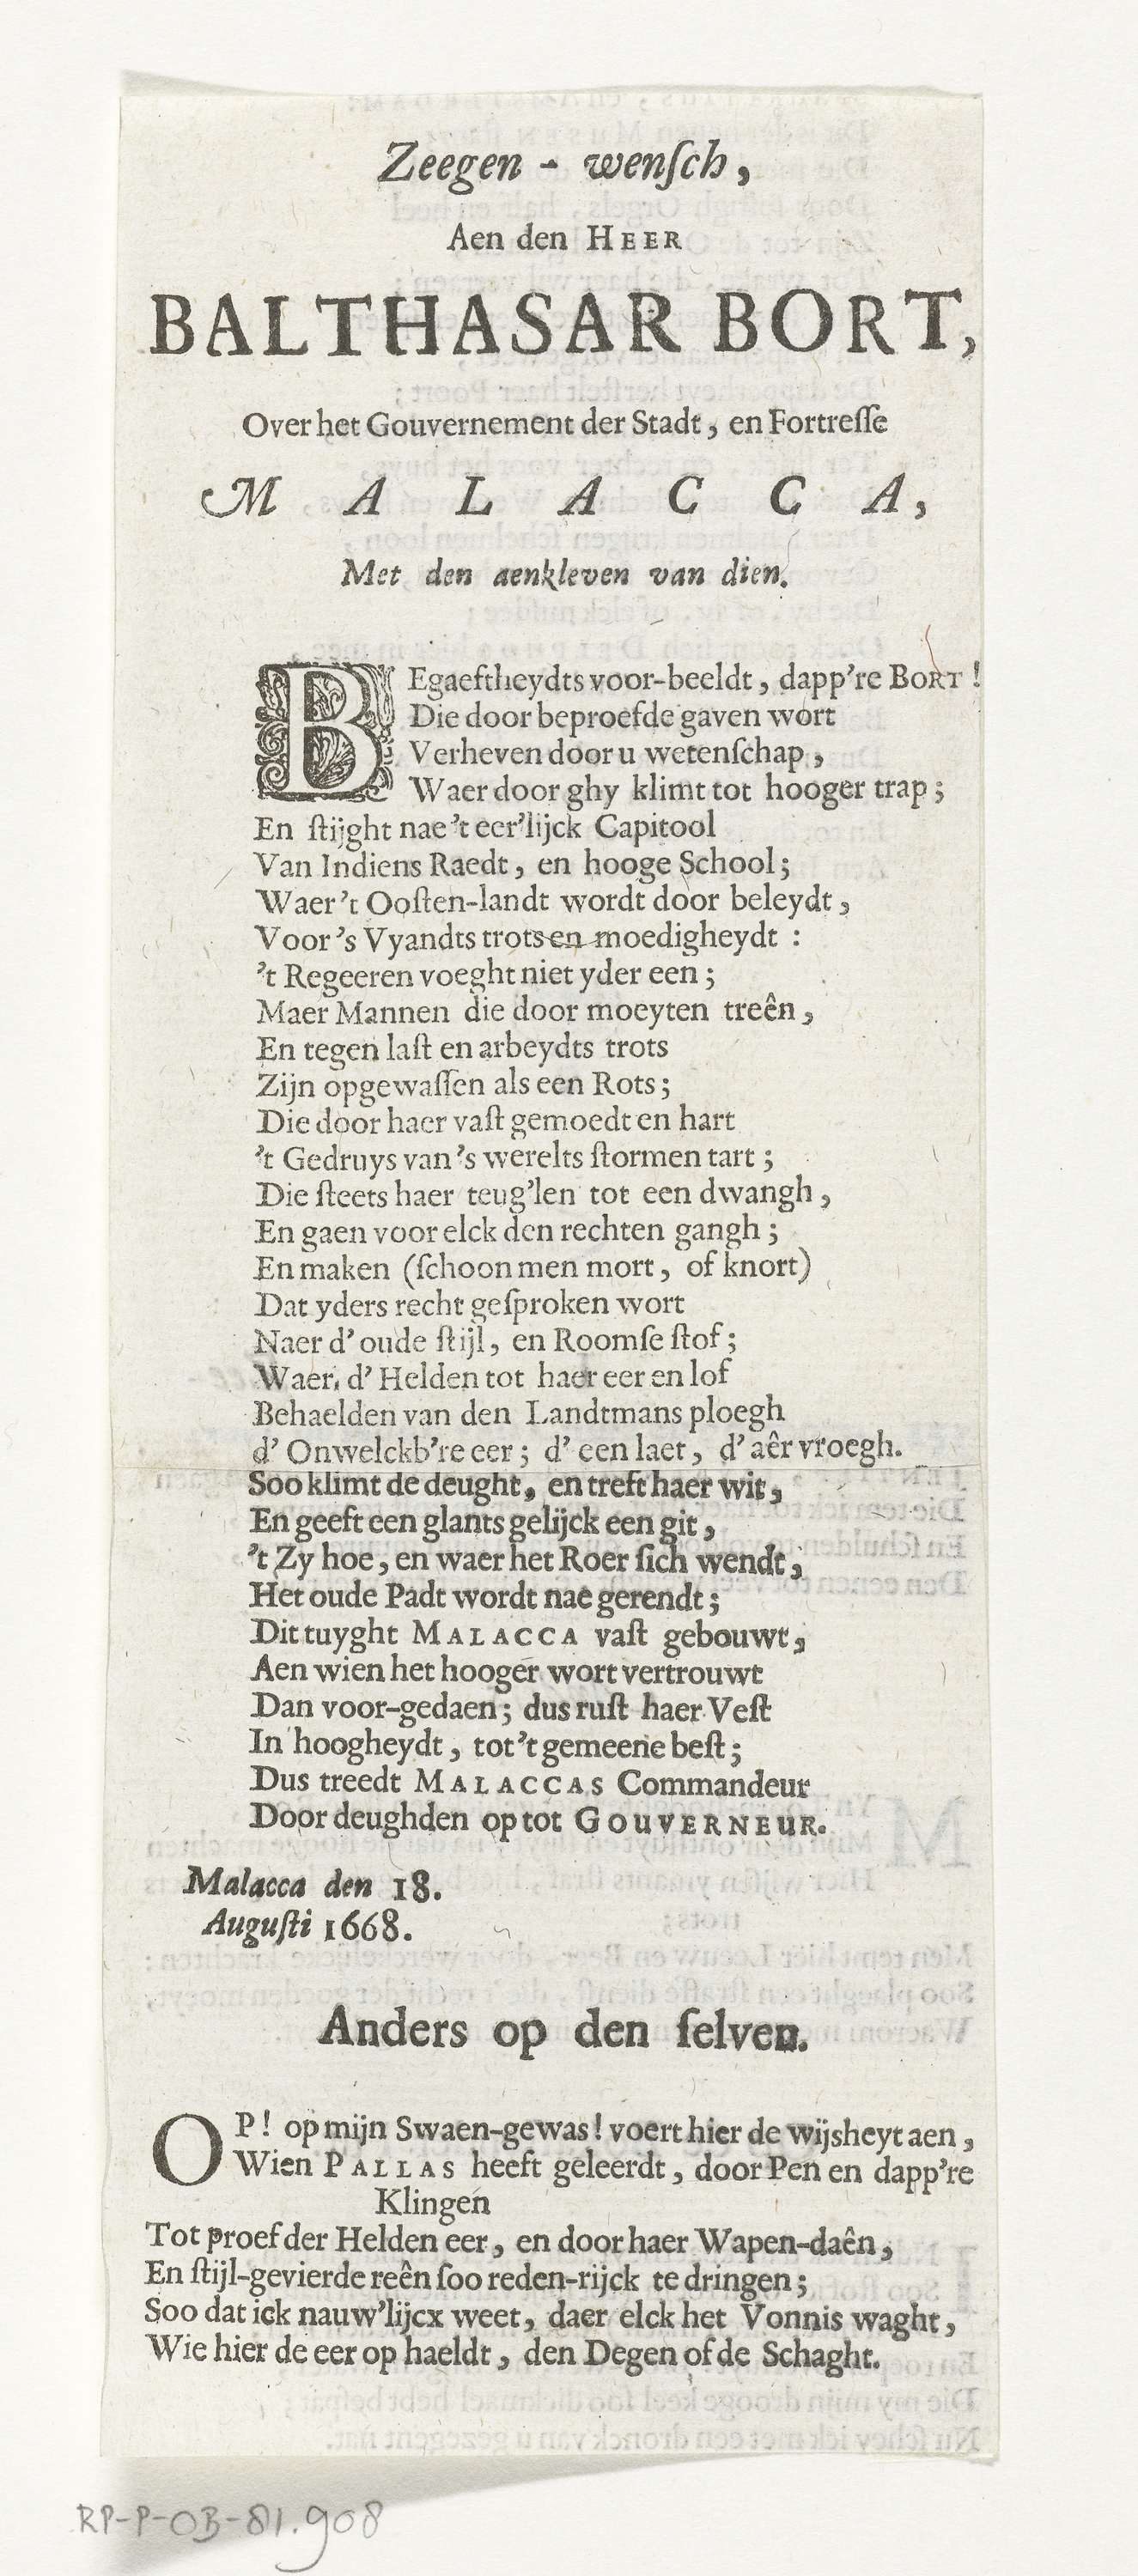 Zeegen - wenſch,
Aen den HEER
BALTHASAR BORT,
Over het Gouvernement der Stadt, en Fortreſſe
MALACCA,
Met den aenkleven van dien.
BEgaeftheydts voor-beeldt, dapp're BORT!
Die door beproefde gaven wort
Verheven door u wetenſchap,
Waer door ghy klimt tot hooger trap;
En ſtijght nae 't eer'lijck Capitool
Van Indiens Raedt, en hooge School;
Waer 't Ooſten-landt wordt door beleydt,
Voor 's Vyandts trots en moedigheydt:
't Regeeren voeght niet yder een;
Maer Mannen die door moeyten treên,
En tegen laſt en arbeydts trots
Zijn opgewaſſen als een Rots;
Die door haer vaſt gemoedt en hart
't Gedruys van 's werelts ſtormen tart;
Die ſteets haer teug'len tot een dwangh,
En gaen voor elck den rechten gangh;
En maken (ſchoon men mort, of knort)
Dat yders recht geſproken wort
Naer d' oude ſtijl, en Roomſe ſtof;
Waer, d' Helden tot haer eer en lof
Behaelden van den Landtmans ploegh
d' Onwelckb're eer; d' een laet, d' aêr vroegh.
Soo klimt de deught, en treft haer wit,
En geeft een glants gelijck een git,
't Zy hoe, en waer het Roer ſich wendt,
Het oude Padt wordt nae gerendt;
Dit tuyght MALACCA vaſt gebouwt,
Aen wien het hooger wort vertrouwt
Dan voor-gedaen; dus ruſt haer Veſt
In hoogheydt, tot 't gemeene beſt;
Dus treedt MALACCAS Commandeur
Door deughden op tot GOUVERNEUR.
Malacca den 18.
Auguſti 1668.
Anders op den ſelven.
OP! op mijn Swaen-gewas! voert hier de wijsheyt aen,
Wien PALLAS heeft geleerdt, door Pen en dapp're
Klingen
Tot proef der Helden eer, en door haer Wapen-daên,
En ſtijl-gevierde reên ſoo reden-rijck te dringen;
Soo dat ick nauw'lijcx weet, daer elck het Vonnis waght,
Wie hier de eer op haeldt, den Degen of de Schaght.
RP-P-OB-81.908